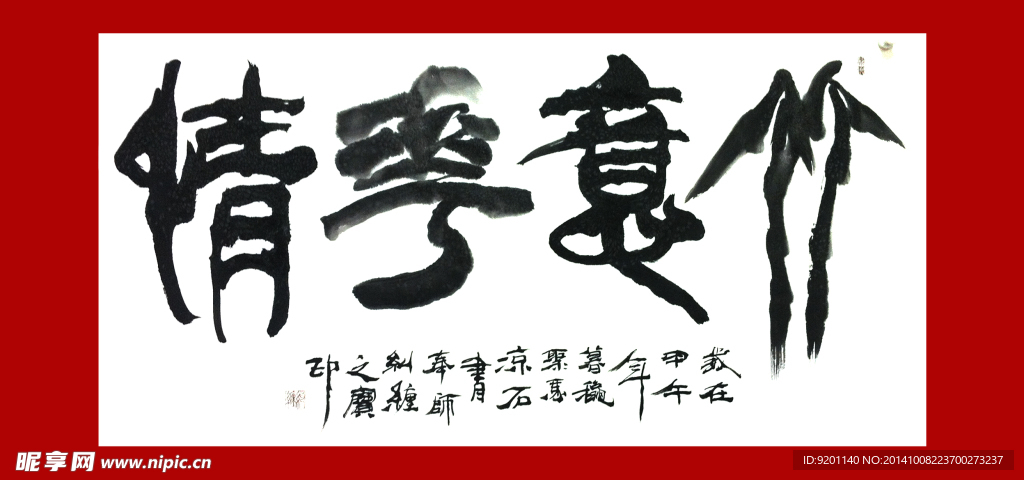 竹意华情
岁在
甲午
年
暮穐
聚墨
凉石
書
奉師
糾纏
之寶
印
昵享网 www.nipic.cn
ID:9201140 NO:20141008223700273237